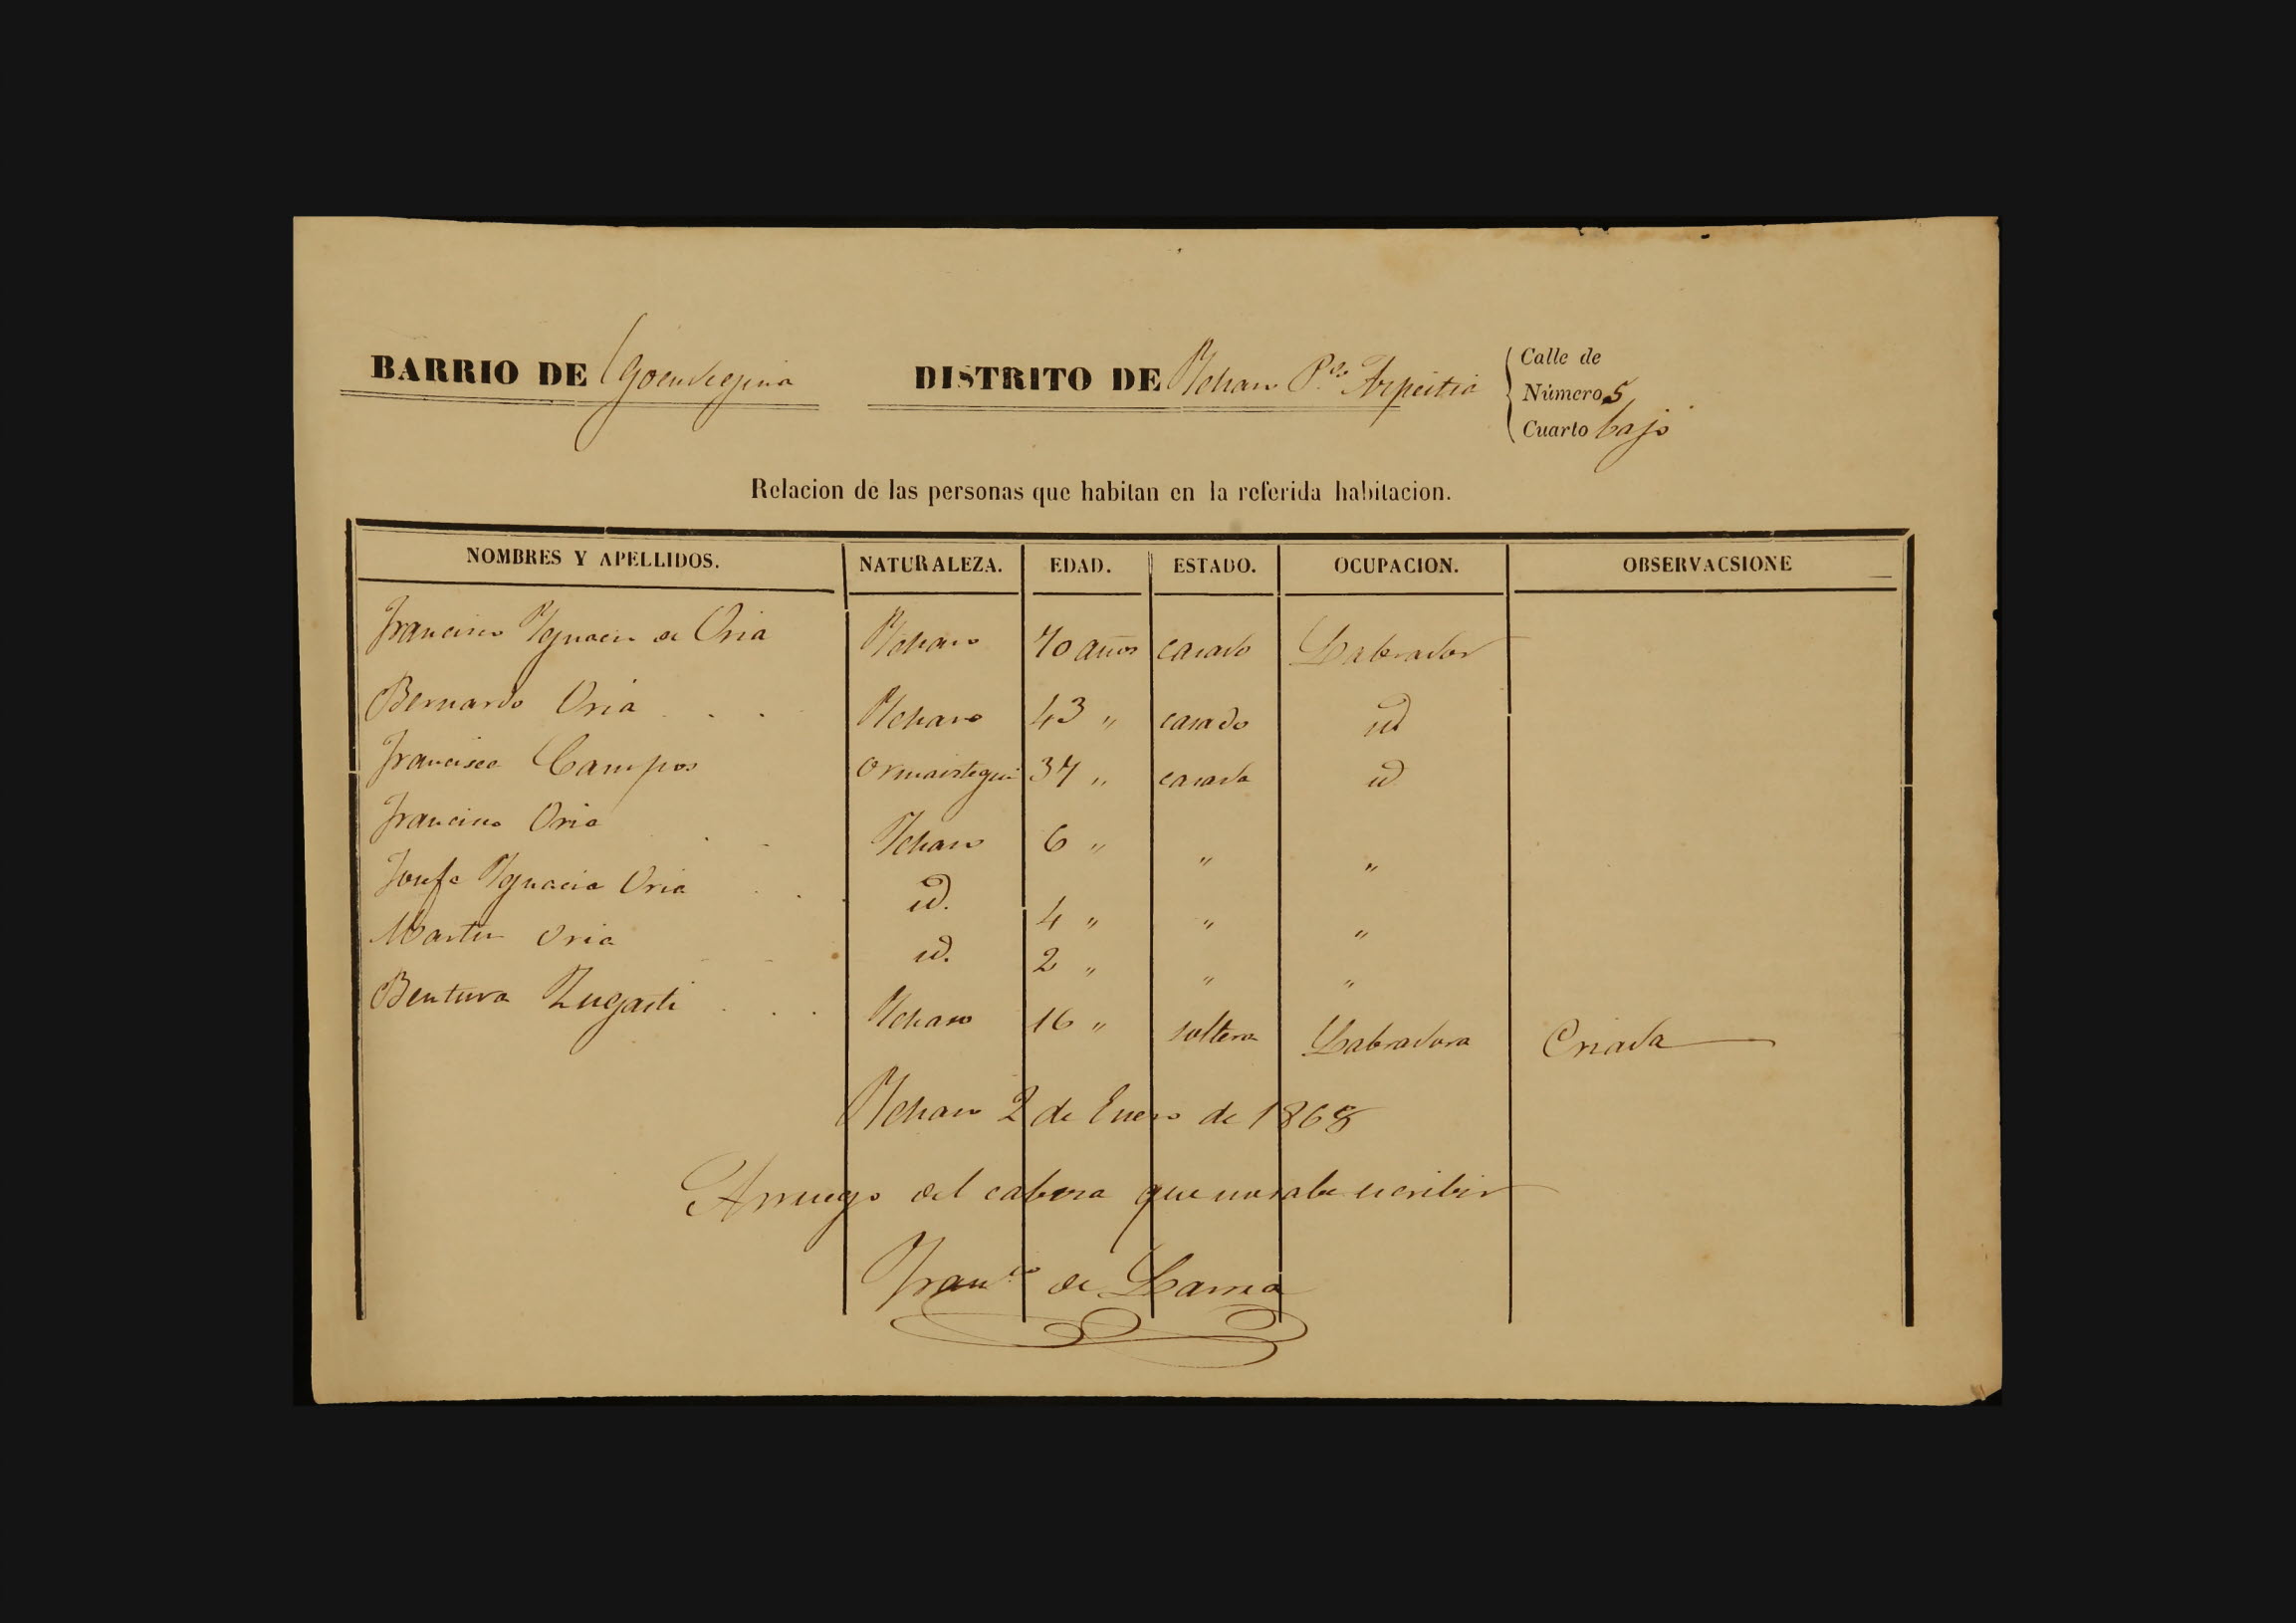 BARRIO DE Goendegina DISTRITO DE Ychaso P.do Azpeitia
Calle de
Número 5
Cuarto bajo
Relacion de las personas que habitan en la referida habitacion.
NOMBRES Y APELLIDOS. NATURALEZA. EDAD. ESTADO. OCUPACION. OBSERVACSIONE
Francisco Ygnacio de Oria Ychaso 70 años casado Labrador
Bernardo Oria . . . Ychaso 43 " casado id
Francisca Campos Ormaiztegui 37 " casada id
Francisco Oria . . - Ychaso 6 " " "
Josefa Ygnacia Oria . . . id. 4 " " "
Martin Oria - - id. 2 " " "
Bentura Zugasti . . . Ychaso 16 " soltera Labradora Criada
Ychaso 2 de Enero de 1868
Arruego del cabeza que no sabe escribir
Fran.co de Lasa